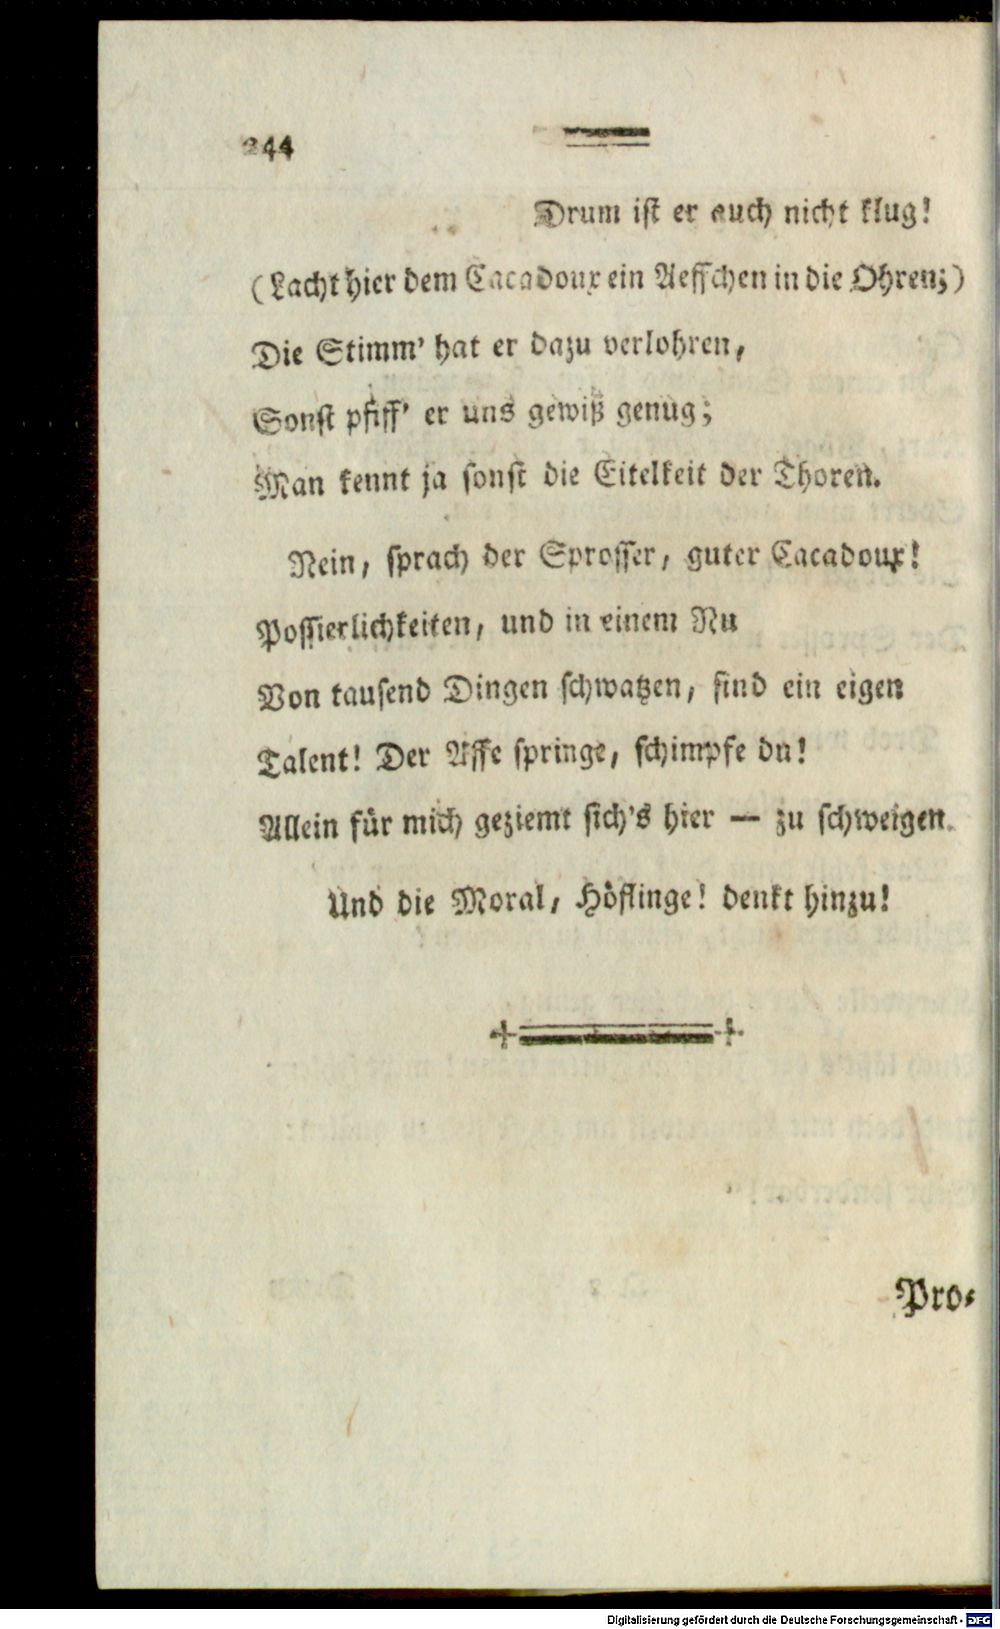 244
Drum ist er auch nicht klug!
(Lacht hier dem Cacadoux ein Aeffchen in die Ohren;)
Die Stimm' hat er dazu verlohren,
Sonst pfiff' er uns gewiß genug;
Man kennt ja sonst die Eitelkeit der Thoren.
Nein, sprach der Sprosser, guter Cacadoux!
Possierlichkeiten, und in einem Nu
Von tausend Dingen schwatzen, sind ein eigen
Talent! Der Affe springe, schimpfe du!
Allein für mich geziemt sich's hier — zu schweigen.
Und die Moral, Höflinge! denkt hinzu!
Pro-
Digitalisierung gefördert durch die Deutsche Forschungsgemeinschaft - DFG